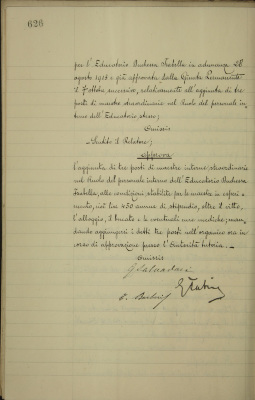 626
per l'Educatorio Andrea Trabella in adunanza 28
agosto 1918 e già approvata dalla Giunta Permanente
il 7 ottobre successivo, relativamente all'aggiunta di tre
posti di maestre straordinarie nel Ruolo del personale in-
terno dell'Educatorio stesso;
Omissis
Udito il Relatore;
Approva
l'aggiunta di tre posti di maestre interne straordinarie
nel Ruolo del personale interno dell'Educatorio Andrea
Trabella, alle condizioni stabilite per le maestre in esperi-
mento, cioè lire 450 annue di stipendio, oltre il vitto,
l'alloggio, il bucato e le eventuali cure mediche; man-
dando aggiungersi i detti tre posti nell'organico ora in
corso di approvazione presso l'Autorità tutoria.
Omissis